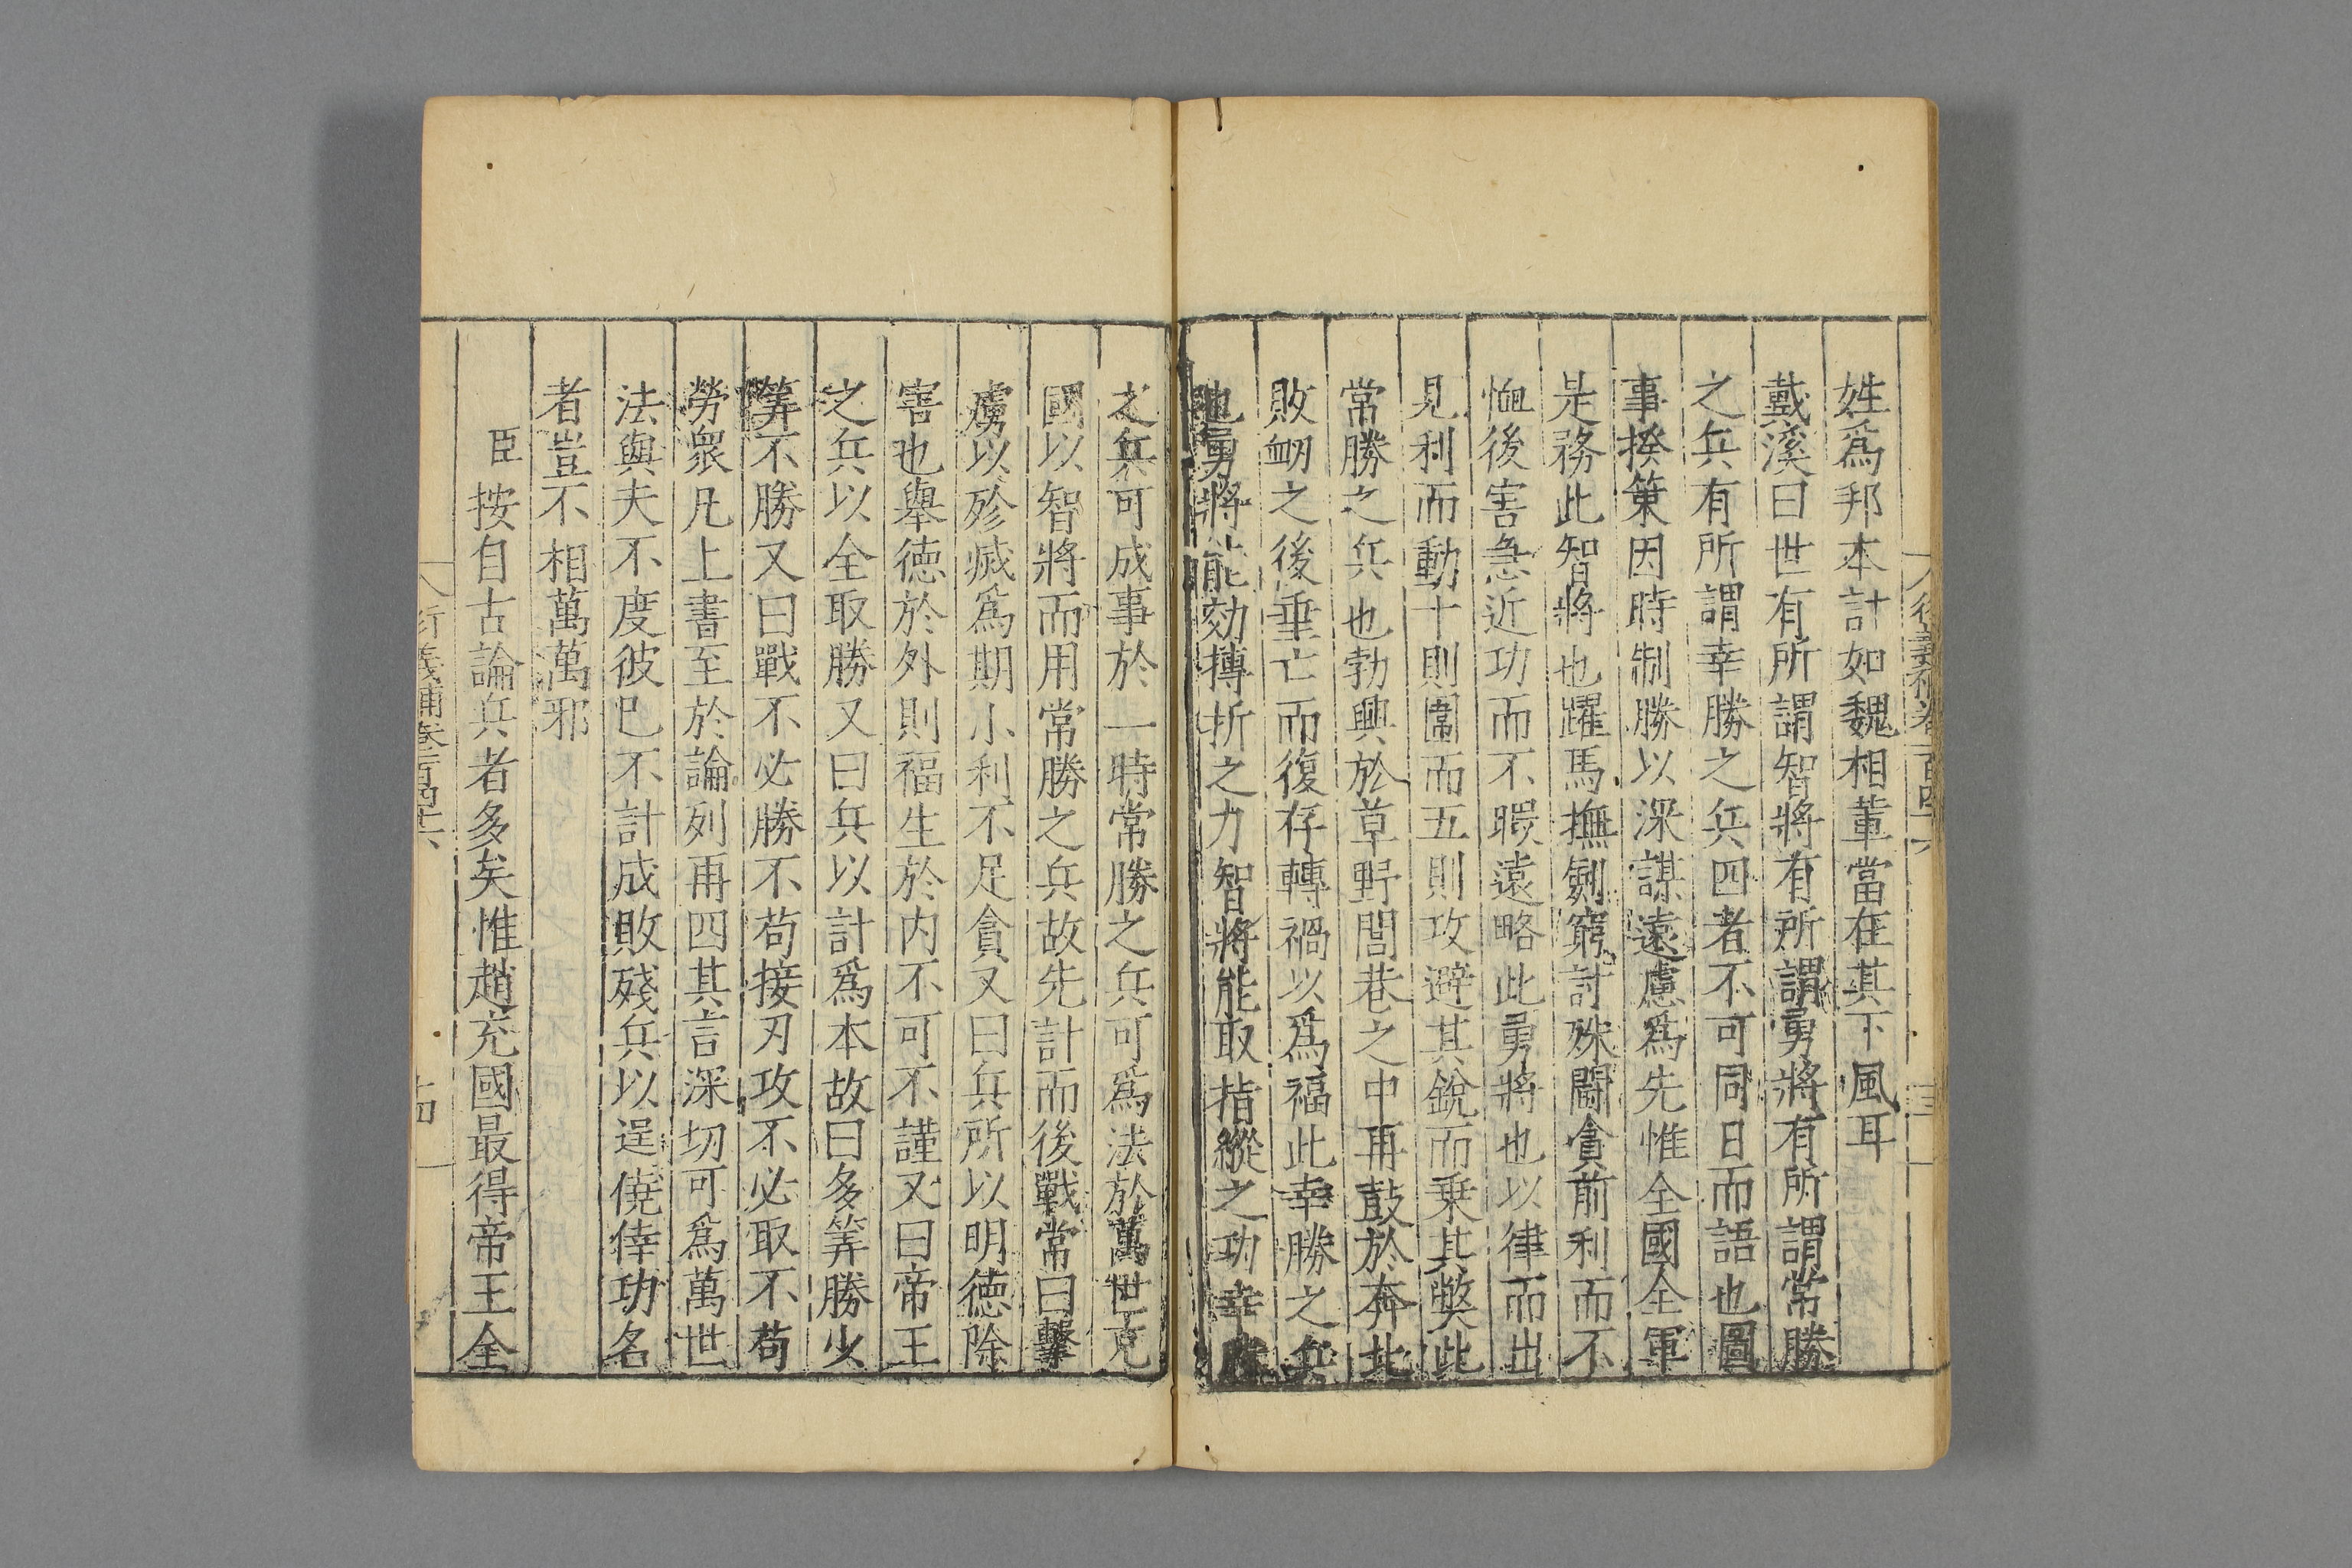 姓爲邦本計如魏相輩當在其下風耳
戴溪曰世有所謂智將有所謂勇將有所謂常勝
之兵有所謂幸勝之兵四者不可同日而語也圖
事揆策因時制勝以深謀遠慮爲先惟全國全軍
是務此智將也躍馬撫劍窮討殊鬬貪前利而不
恤後害急近功而不暇遠略此勇將也以律而出
見利而動十則圍而五則攻避其銳而乗其弊此
常勝之兵也勃興於草野閭巷之中再鼓於奔北
敗衂之後垂亡而復存轉禍以爲福此幸勝之兵
也勇將能効摶折之力智將能取指縱之功幸勝
之兵可成事於一時常勝之兵可爲法於萬世充
國以智將而用常勝之兵故先計而後戰常曰擊
虜以殄㓕爲期小利不足貪又曰兵所以明徳除
害也舉徳於外則福生於内不可不謹又曰帝王
之兵以全取勝又曰兵以計爲本故曰多筭勝少
筭不勝又曰戰不必勝不苟接刃攻不必取不苟
勞衆凡上書至於論列再四其言深切可爲萬世
法與夫不度彼巳不計成敗殘兵以逞僥倖功名
者豈不相萬萬邪
臣按自古論兵者多矣惟趙充國最得帝王全
衍義補卷一百四十六
十四